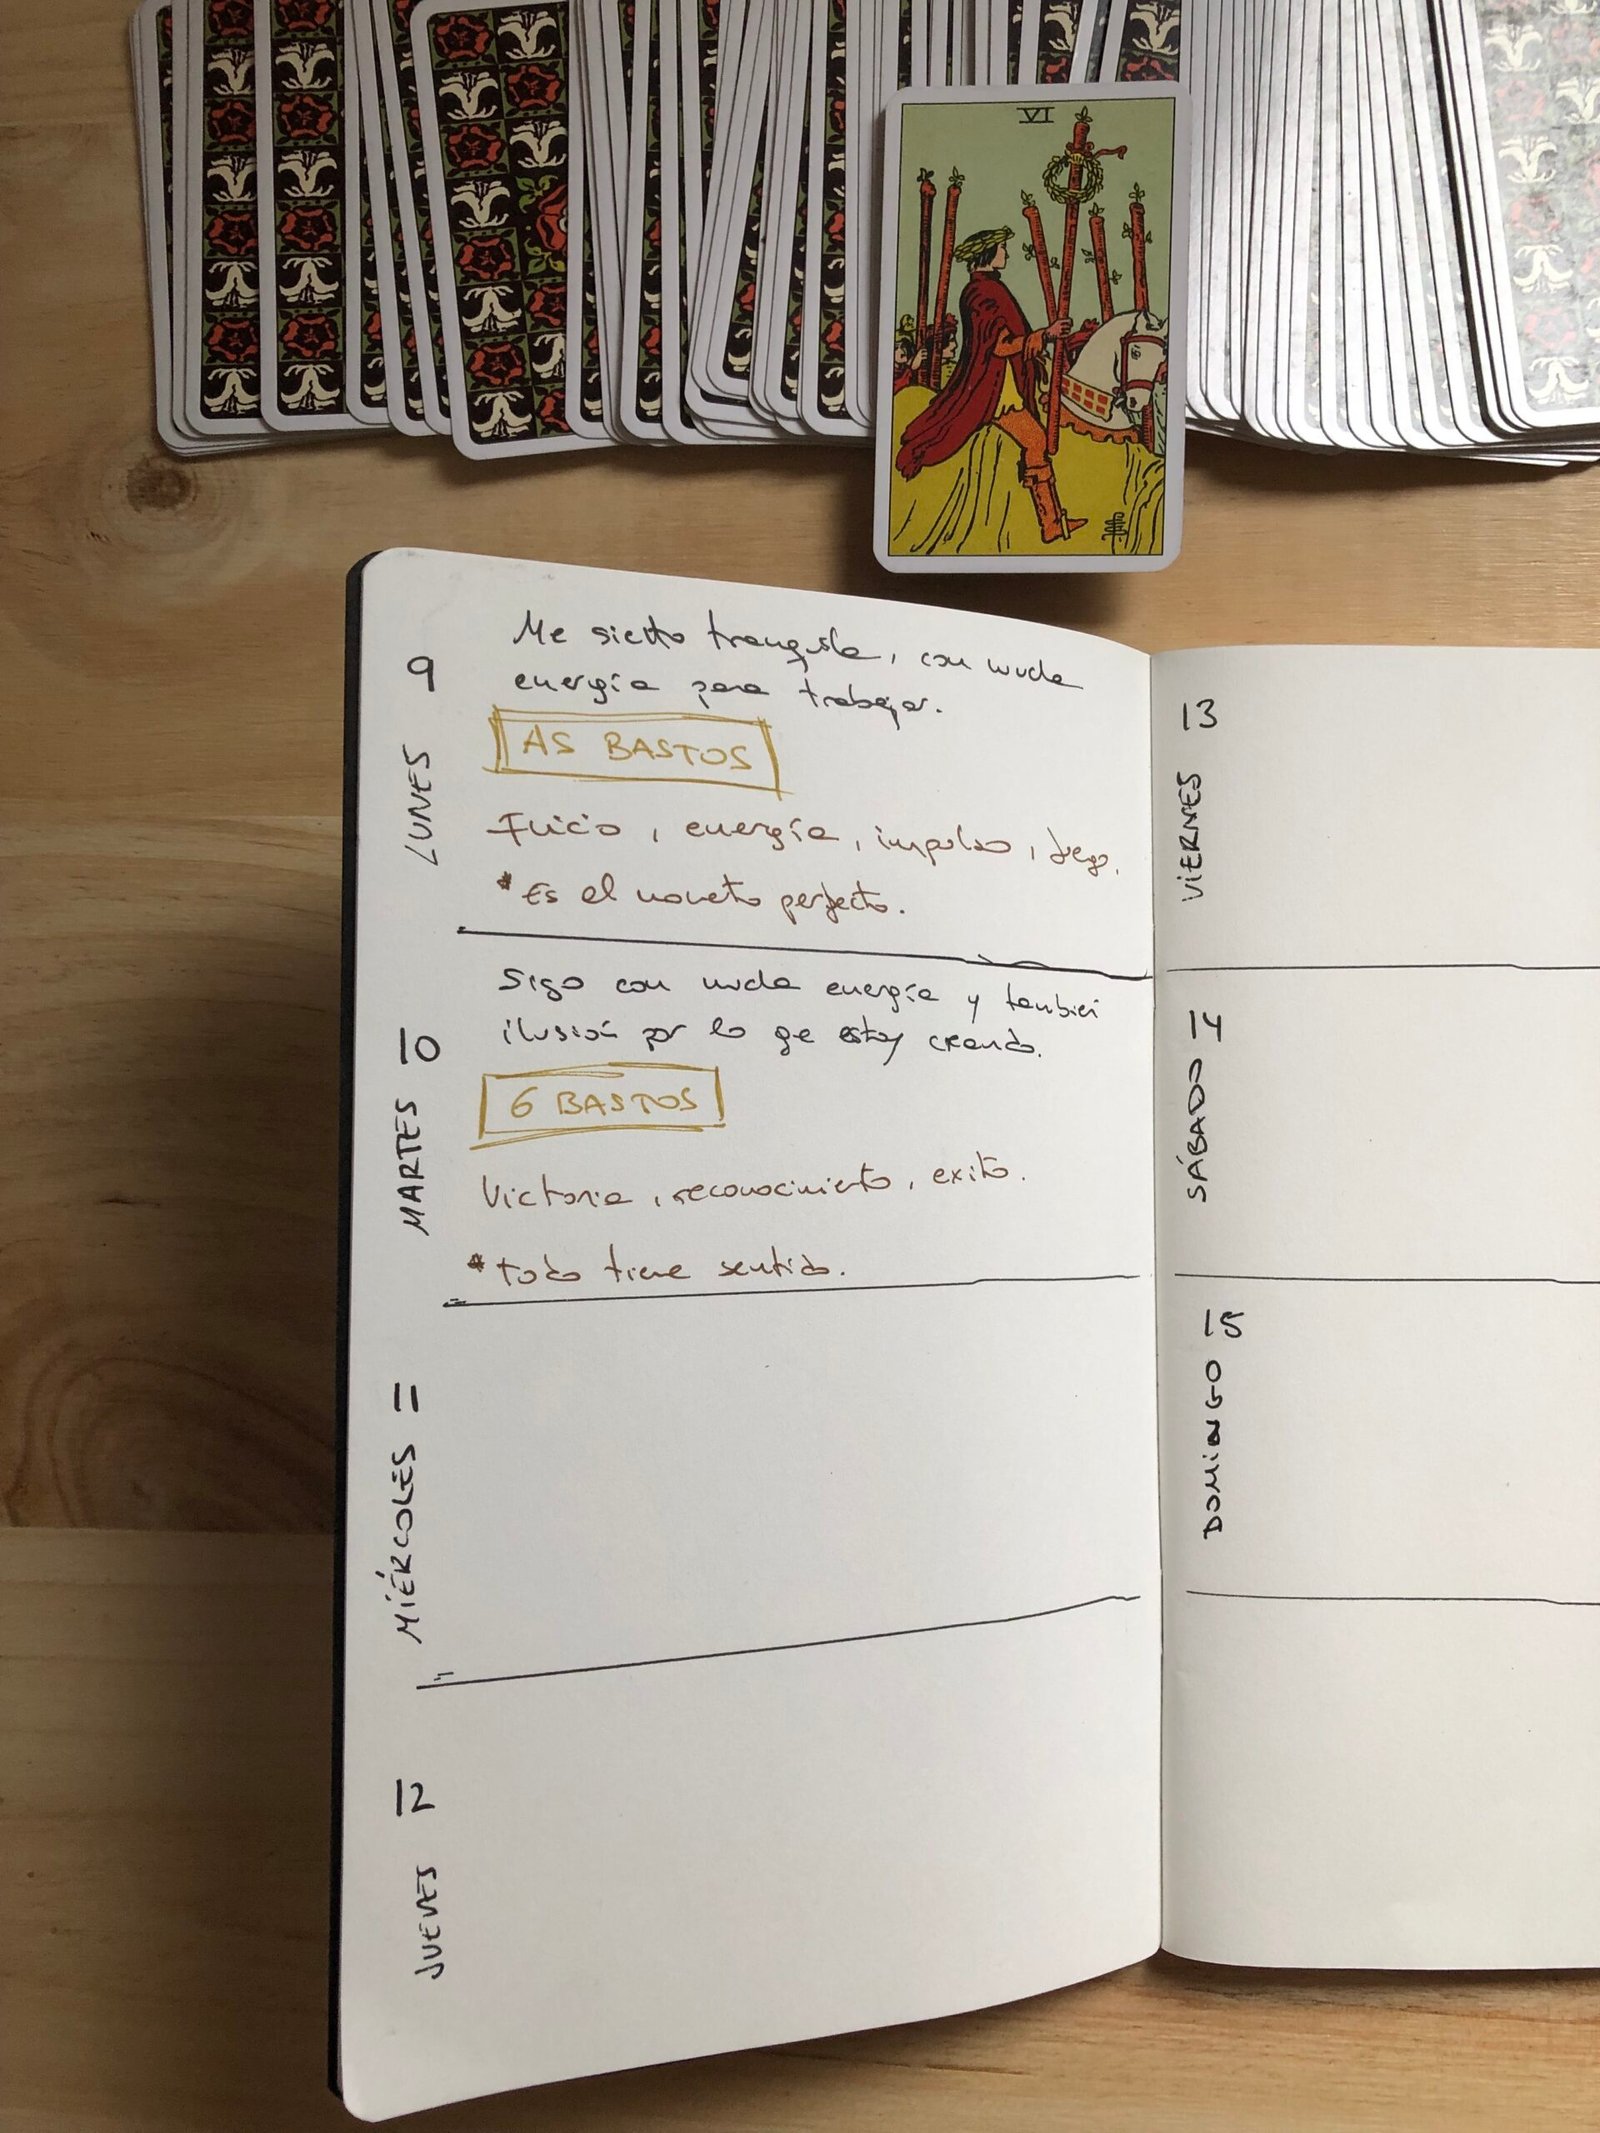 VI
9
LUNES
Me siento tranquila, con mucha
energía para trabajar.
AS BASTOS
Inicio, energía, impulso, fuego.
* Es el momento perfecto.
10
MARTES
Sigo con mucha energía y también
ilusión por lo que estoy creando.
6 BASTOS
Victoria, reconocimiento, exito.
* todo tiene sentido.
11
MIÉRCOLES
12
JUEVES
13
VIERNES
14
SÁBADO
15
DOMINGO